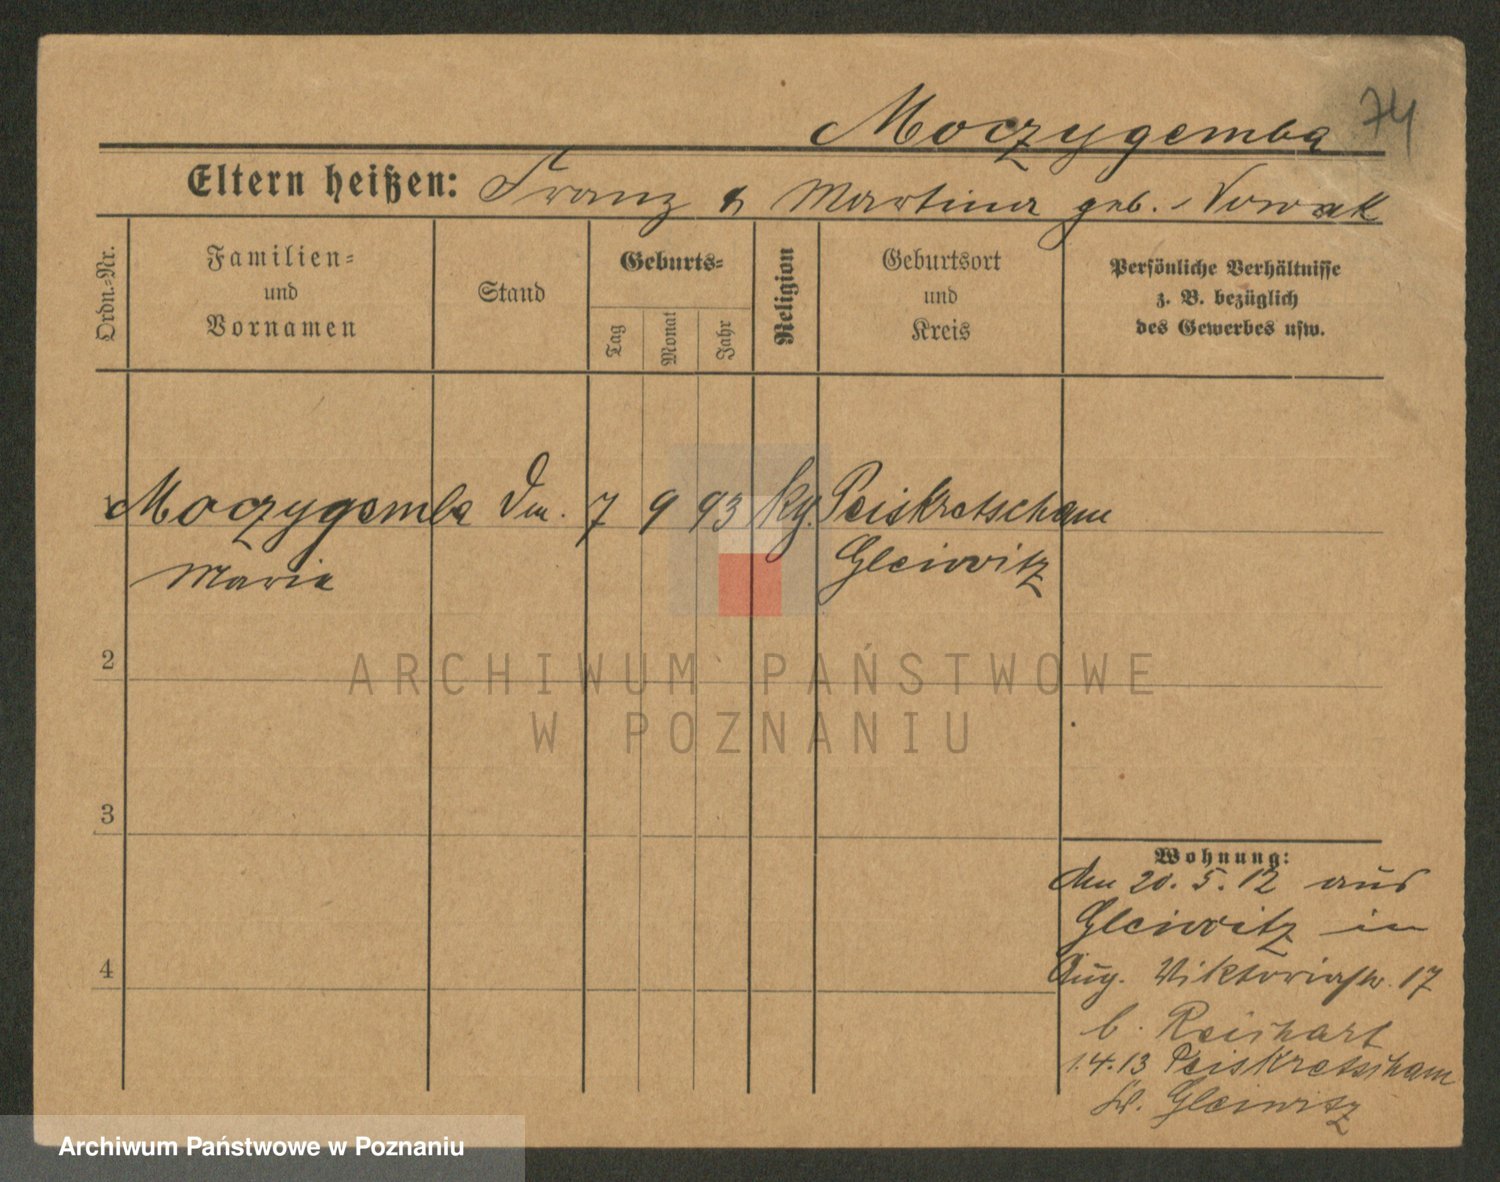 Moczygemba 74
Eltern heißen: Franz & Martina geb. Nowak
Ordn.-Nr.
Familien-
und
Vornamen
Stand
Geburts-
Tag
Monat
Jahr
Religion
Geburtsort
und
Kreis
Persönliche Verhältnisse
z. B. bezüglich
des Gewerbes usw.
1 Moczygemba 7 9 93 kg. Peiskretscham
Maria Gleiwitz
2
ARCHIWUM PAŃSTWOWE
W POZNANIU
3
4
Wohnung:
den 20. 5. 12 aus
Gleiwitz in
Aug. Viktoriastr. 17
b.
1.4.13 Peiskretscham
Gleiwitz
Archiwum Państwowe w Poznaniu